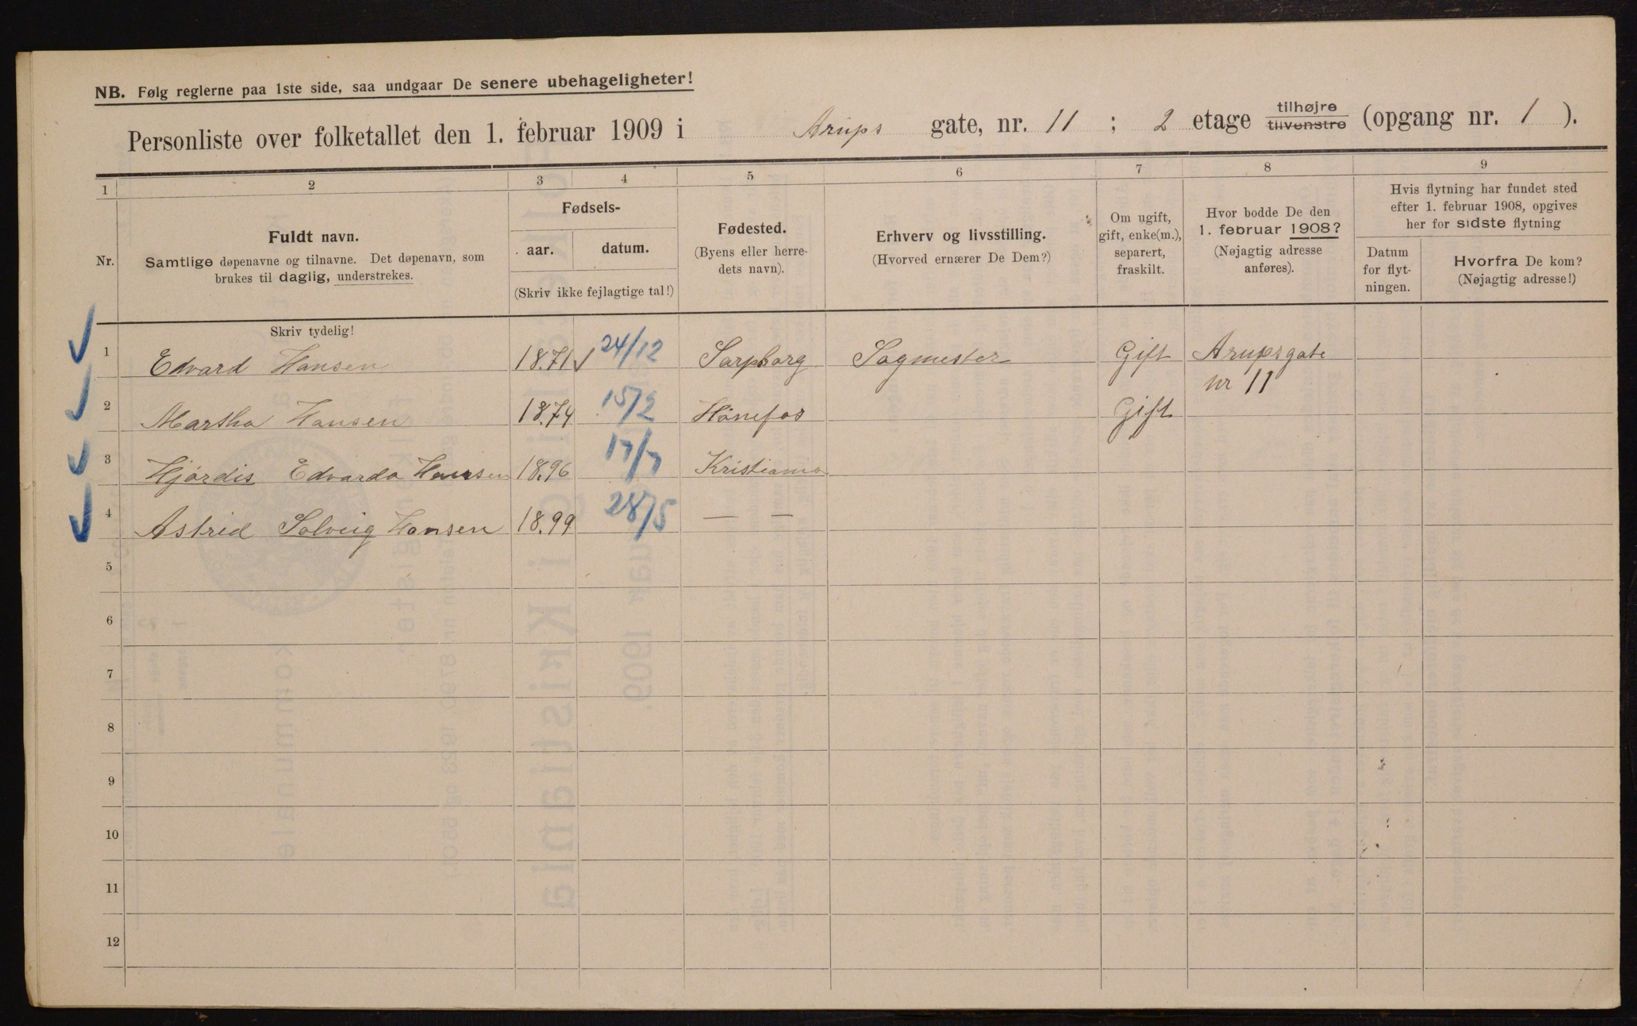 NB. Følg reglerne paa 1ste side, saa undgaar De senere ubehageligheter!
Personliste over folketallet den 1. februar 1909 i Arups gate, nr. 11 ; 2 etage tilhøjre tilvenstre (opgang nr. 1 ).
1 2 3 4 5 6 7 8 9
Nr.
Fuldt navn.
Samtlige døpenavne og tilnavne. Det døpenavn, som
brukes til daglig, understrekes.
Fødsels-
aar. datum.
(Skriv ikke fejlagtige tal!)
Fødested.
(Byens eller herre-
dets navn).
Erhverv og livsstilling.
(Hvorved ernærer De Dem?)
Om ugift,
gift, enke(m.),
separert,
fraskilt.
Hvor bodde De den
1. februar 1908?
(Nøjagtig adresse
anføres).
Hvis flytning har fundet sted
efter 1. februar 1908, opgives
her for sidste flytning
Datum
for flyt-
ningen.
Hvorfra De kom?
(Nøjagtig adresse!)
Skriv tydelig!
1 Edvard Hansen 1871 24/12 Sarpborg Sagmester Gift Arupsgate
nr 11
2 Martha Hansen 1874 15/2 Hønefos Gift
3 Hjørdis Edvarda Hansen 1896 17/7 Kristiania
4 Astrid Solveig Hansen 1899 28/5 — —
5
6
7
8
9
10
11
12